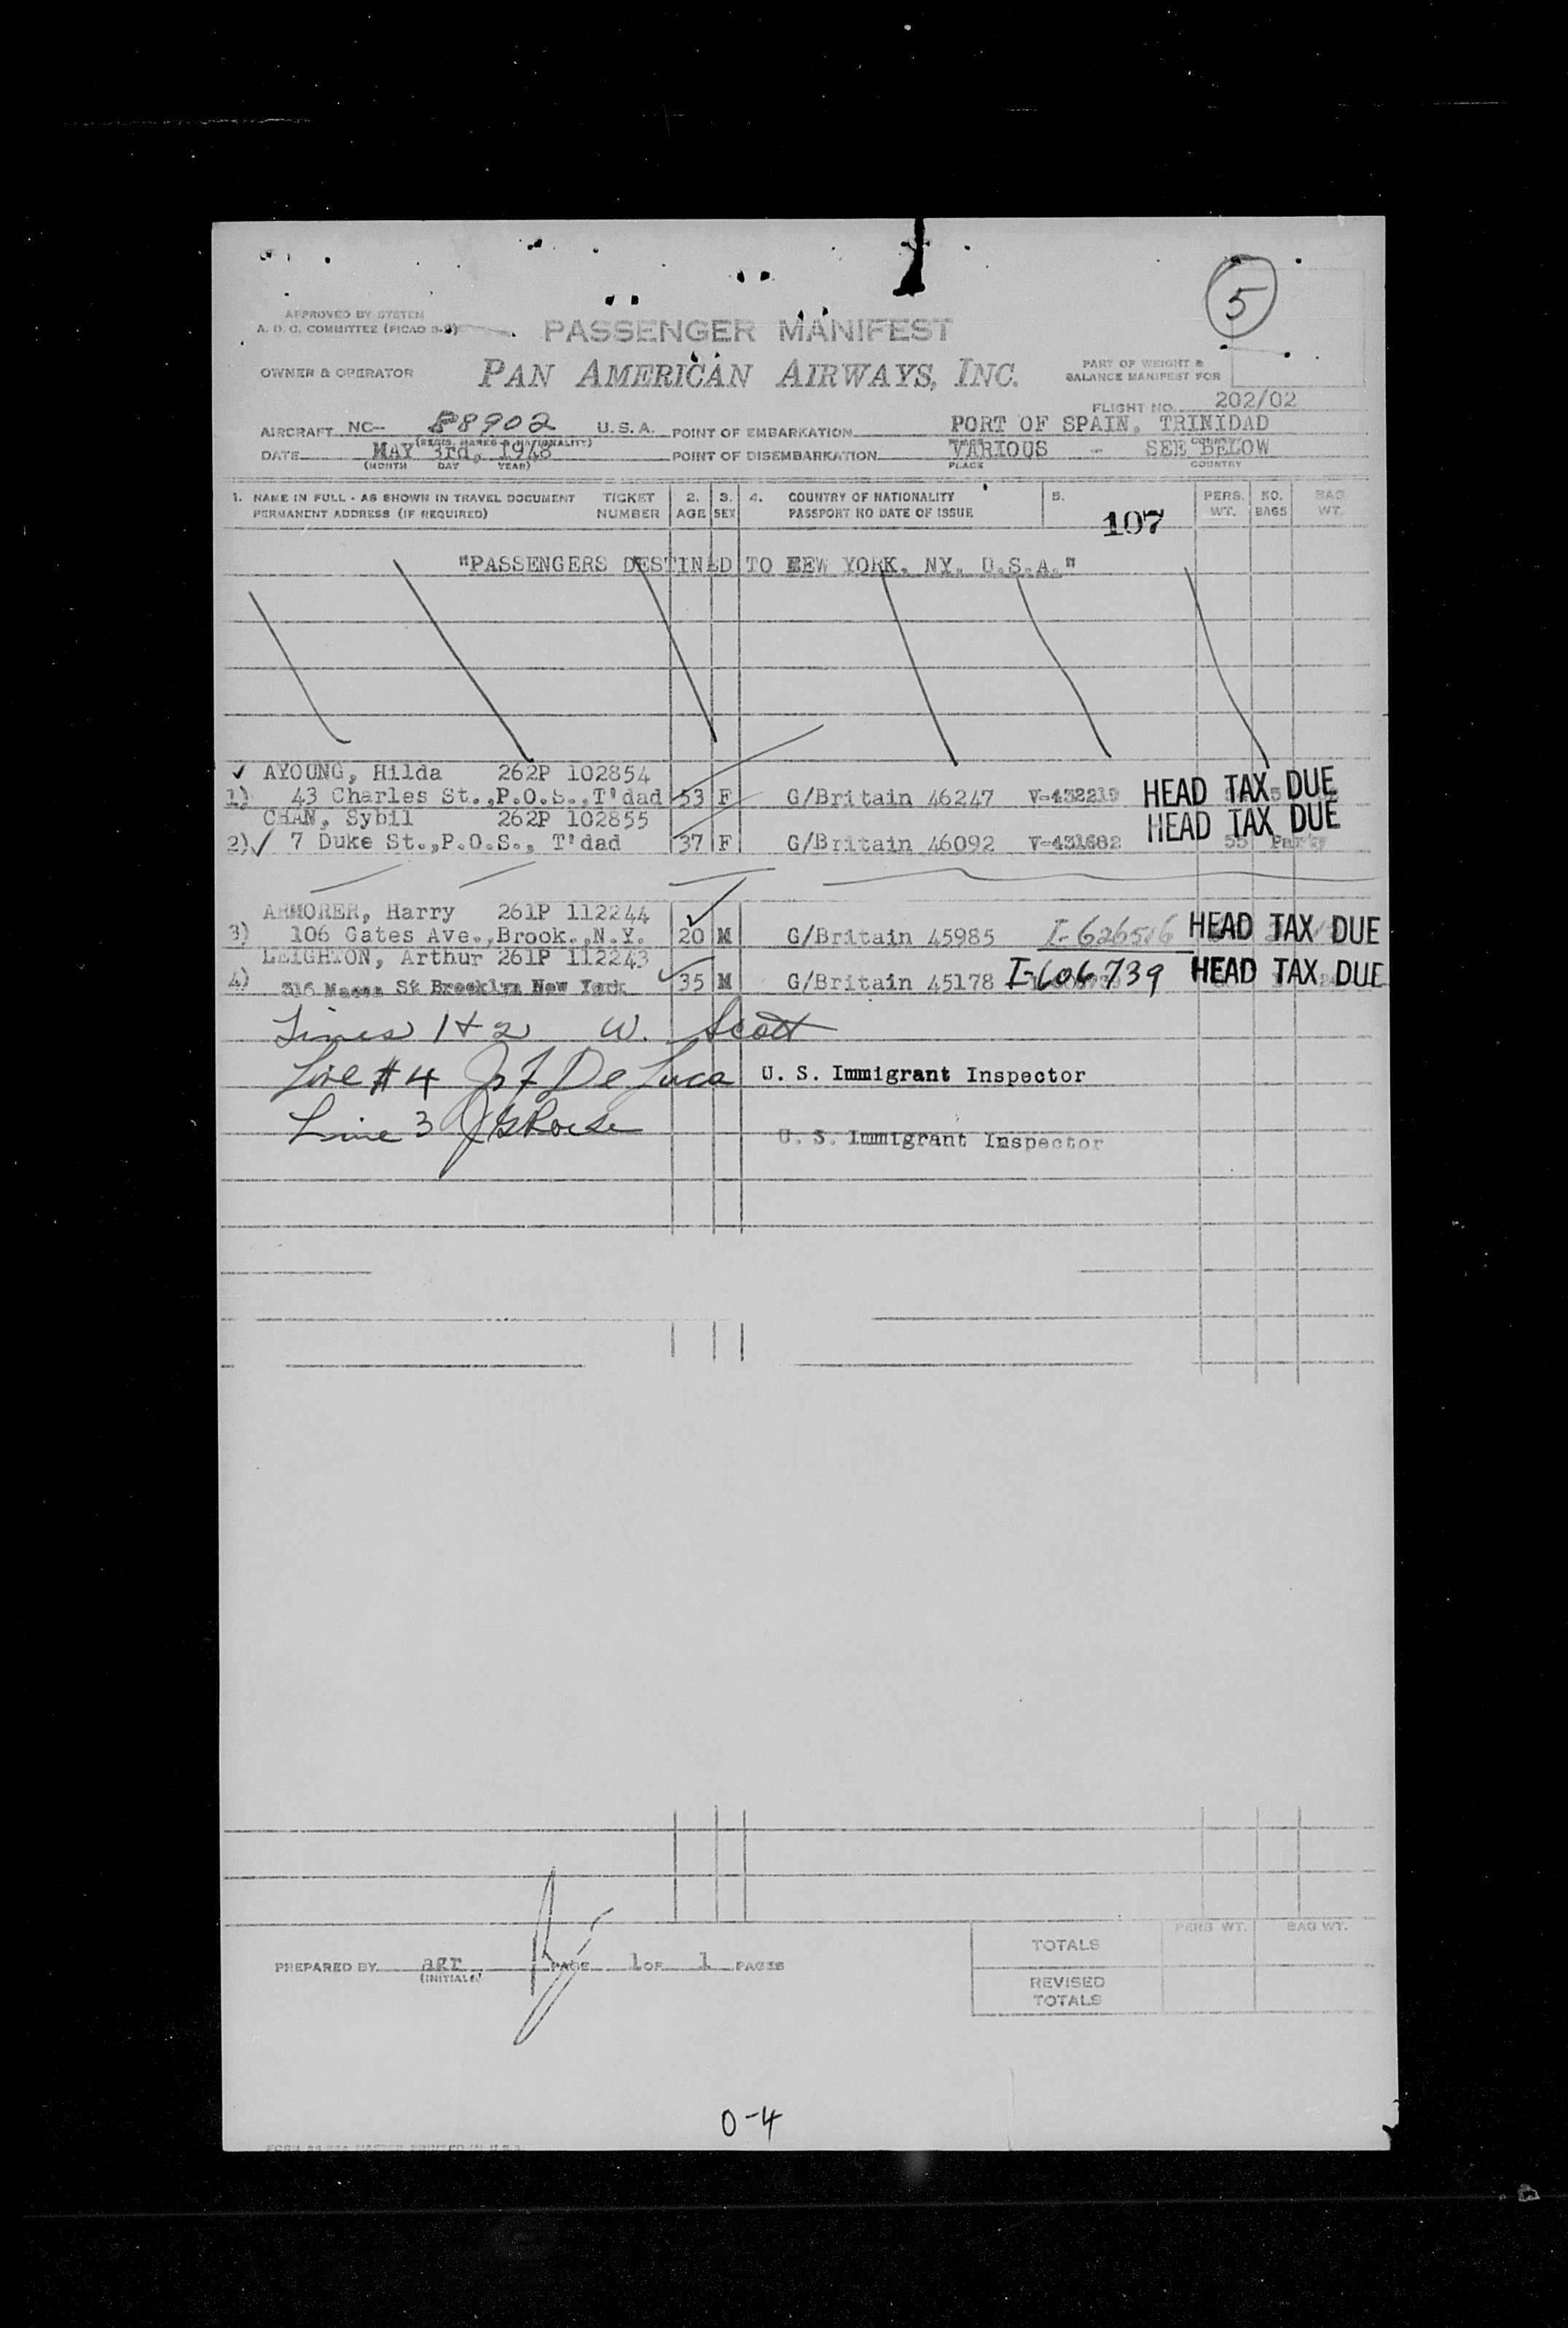 5
APPROVED BY SYSTEM
A. D. C. COMMITTEE (PICAO 3-2)
PASSENGER MANIFEST
OWNER & OPERATOR PAN AMERICAN AIRWAYS, INC.
PART OF WEIGHT &
BALANCE MANIFEST FOR
FLIGHT NO. 202/02
AIRCRAFT NC-- 88902 U.S.A. POINT OF EMBARKATION PORT OF SPAIN, TRINIDAD
(REGIS. MARKS & NATIONALITY) PLACE COUNTRY
DATE MAY 3rd, 1948 POINT OF DISEMBARKATION VARIOUS - SEE BELOW
(MONTH DAY YEAR) PLACE COUNTRY
1. NAME IN FULL - AS SHOWN IN TRAVEL DOCUMENT TICKET 2. 3. 4. COUNTRY OF NATIONALITY 5. PERS. NO. BAG
PERMANENT ADDRESS (IF REQUIRED) NUMBER AGE SEX PASSPORT NO DATE OF ISSUE 107 WT. BAGS WT.
"PASSENGERS DESTINED TO NEW YORK, NY. U.S.A."
AYOUNG, Hilda 262P 102854
1) 43 Charles St.,P.O.S.,T'dad 53 F G/Britain 46247 V-432219 HEAD TAX DUE
CHAN, Sybil 262P 102855 HEAD TAX DUE
2) 7 Duke St.,P.O.S., T'dad 37 F G/Britain 46092 V-431682 55 Party
ARMORER, Harry 261P 112244
3) 106 Gates Ave.,Brook.,N.Y. 20 M G/Britain 45985 I-626516 HEAD TAX DUE
LEIGHTON, Arthur 261P 112243
4) 316 Macon St Brooklyn New York 35 M G/Britain 45178 I-606739 HEAD TAX DUE
Lines 1 & 2 W. Scott
Line #4 Jos F De Luca U. S. Immigrant Inspector
Line 3
U. S. Immigrant Inspector
PERS WT. BAG WT.
TOTALS
PREPARED BY agr PAGE 1 OF 1 PAGES
(INITIALS)
REVISED
TOTALS
0-4